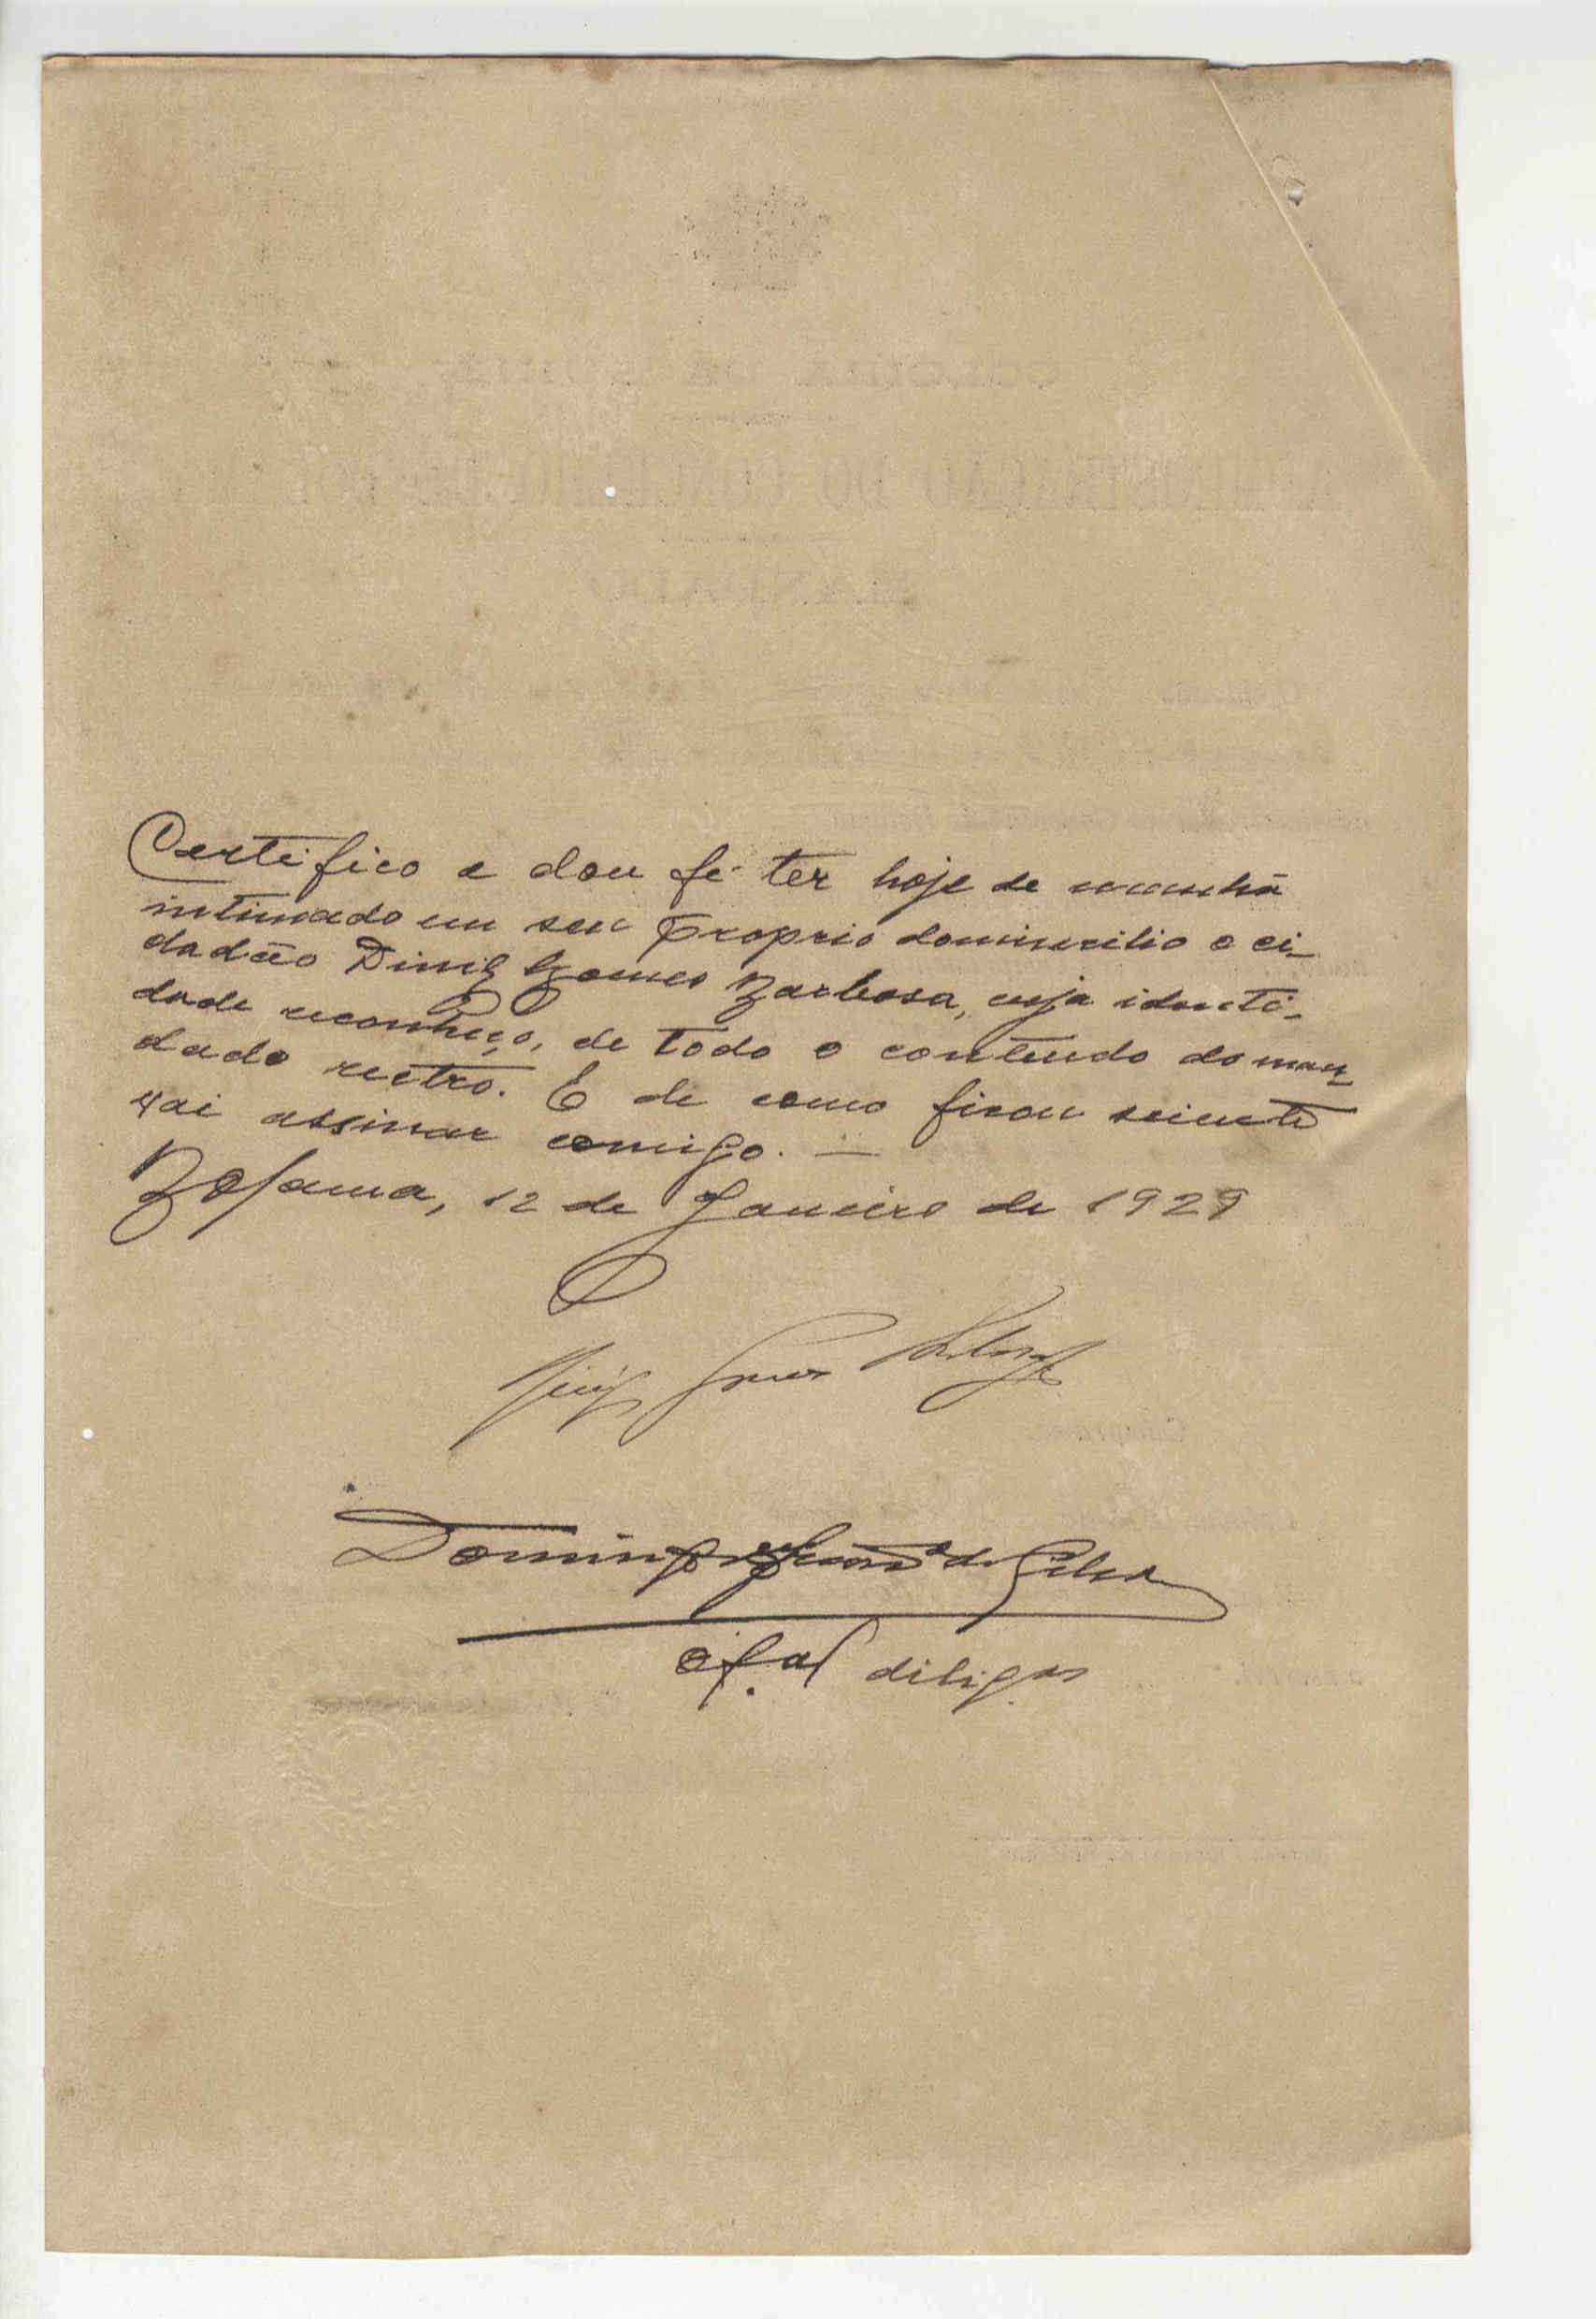 Certifico e dou fé ter hoje de manhã
intimado em seu proprio dominicilio o ci-
dadão Diniz Gomes Barbosa, cuja identi-
dade reconheço, de todo o conteudo do man-
dado rectro. E de como ficou sciente
vai assinar comigo. —
Bolama, 12 de Janeiro de 1929
Diniz Gomes Barbosa
Domingos da Silva
Of.al diligas